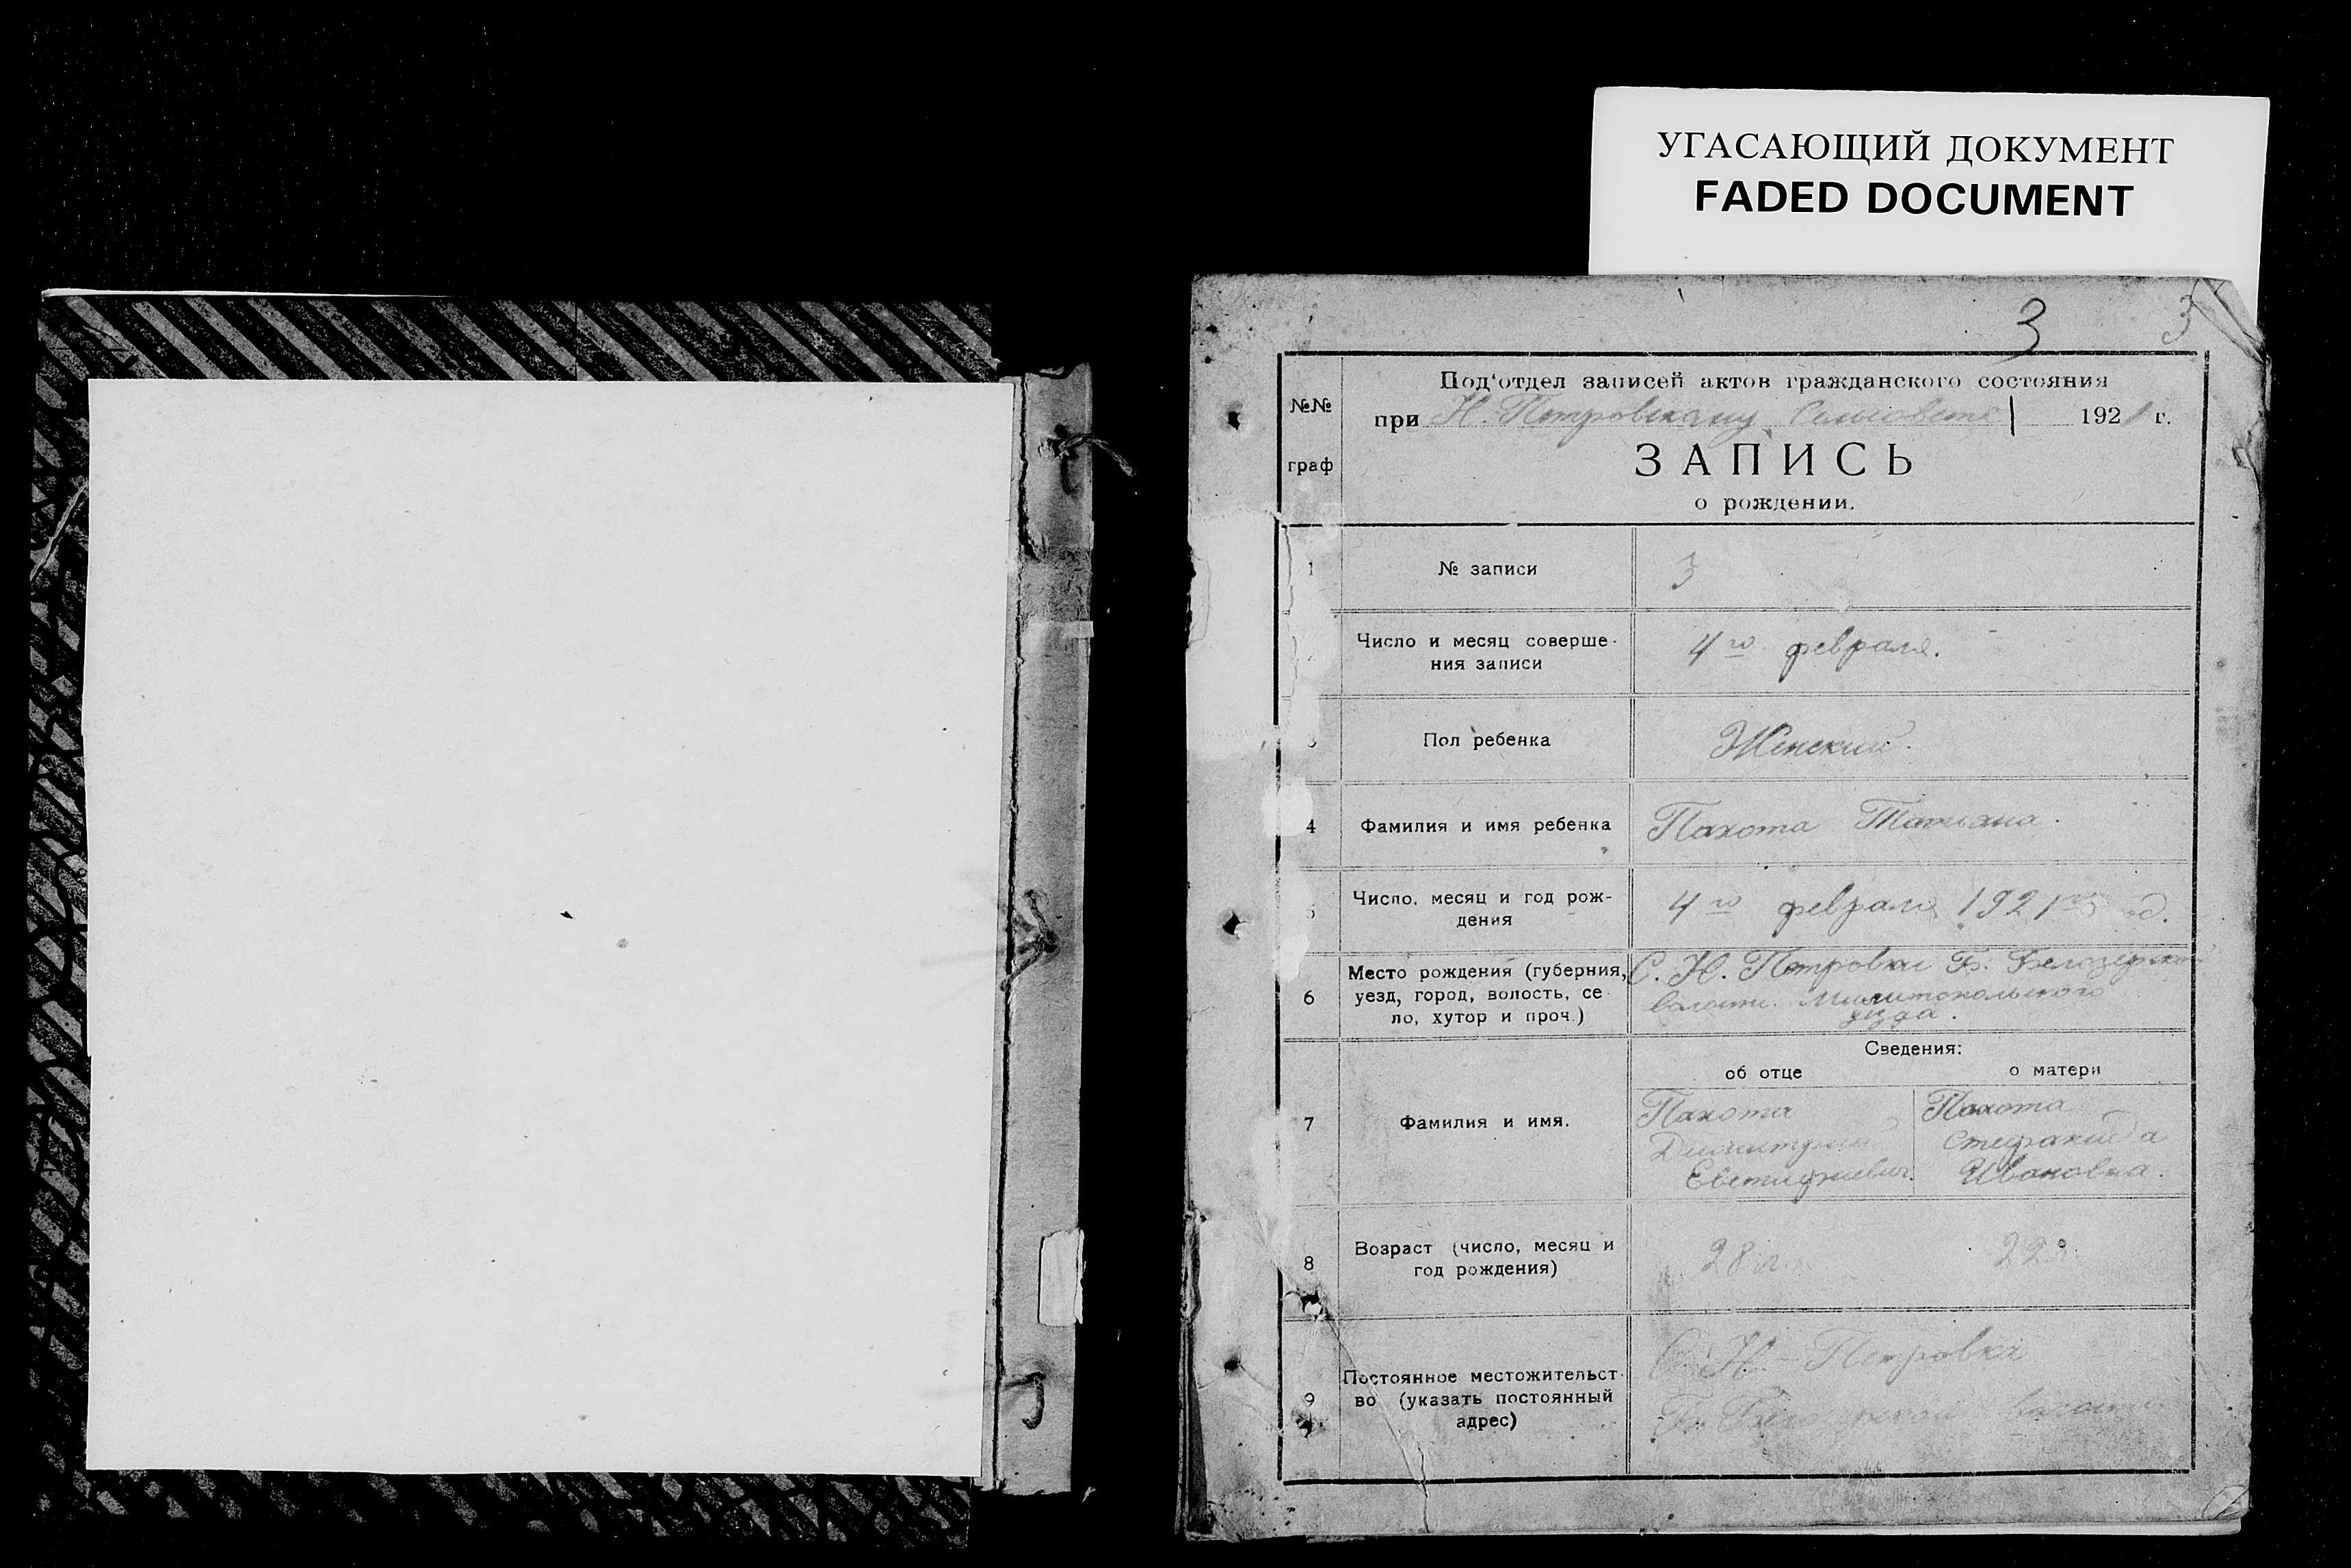 УГАСАЮЩИЙ ДОКУМЕНТ
FADED DOCUMENT
3
3
№№
граф
Под'отдел записей актов гражданского состояния
при Н. Петровскому Сельсовете 1921 г.
ЗАПИСЬ
о рождении.
1 № записи 3
Число и месяц соверше-
ния записи
4го февраля.
3 Пол ребенка Женский.
4 Фамилия и имя ребенка Пахота Татьяна.
5 Число, месяц и год рож-
дения
4го февраля 1921го
6 Место рождения (губерния,
уезд, город, волость, се
ло, хутор и проч.)
С. Н. Петровки Б. Белозерской
волости. Мелитопольского
уезда.
Сведения:
об отце о матери
7 Фамилия и имя.
Пахота
Димитрий
Евтифиевич.
Пахота
Стефанида
Ивановна.
8 Возраст (число, месяц и
год рождения)
28 л. 22
9 Постоянное местожительст-
во (указать постоянный
адрес)
С. Н. - Петровка
Б. волости